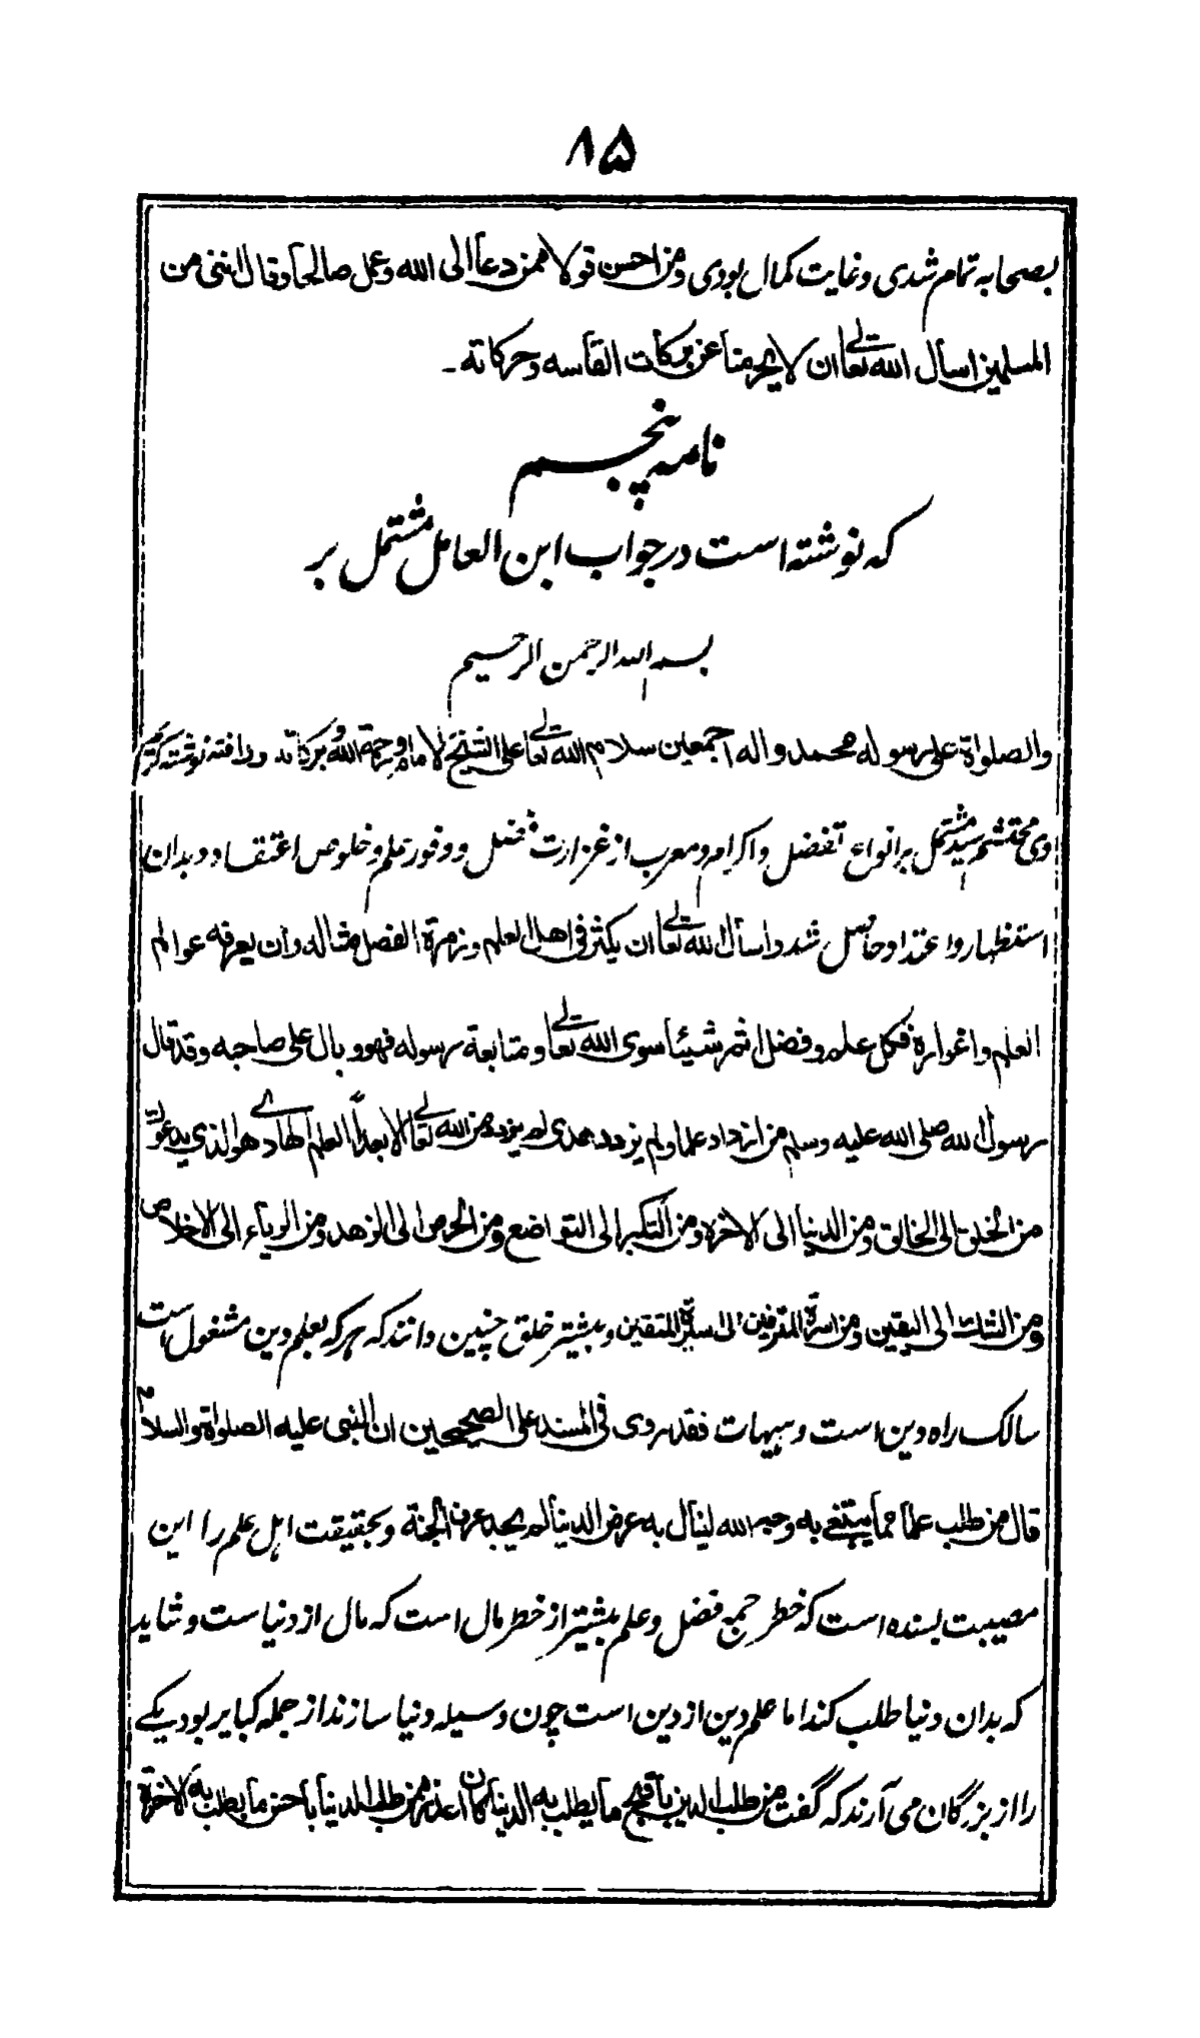 ۸۵
بصحابه تمام شدی و غایت کمال بودی ومن احسن قولا ممن دعا الی الله وعمل صالحا وقال اننی من
المسلمین اسأل الله تعالی ان لا یحرمنا عن برکات انفاسه وحرکاته ـ
نامه پنجم
که نوشته است در جواب ابن العامل مشتمل بر
بسم الله الرحمن الرحیم
والصلواة علی رسوله محمد واله اجمعین سلام الله تعالی علی الشیخ الامام ورحمة الله وبرکاته
وی محتشم رسید مشتمل بر انواع تفضل و اکرام و معرب از غزارت فضل و وفور علم و خلوص اعتقاد و بدان
استظهار و اعتداد حاصل شد واسأل الله تعالی ان یکثر فی اهل العلم وزمرة الفضل مثاله وان یعرفه عوالم
العلم واغواره فکل علم وفضل اثمر شیئا سوی الله تعالی ومتابعة رسوله فهو وبال علی صاحبه وقد قال
رسول الله صلی الله علیه وسلم من ازداد علما ولم یزدد هدی لم یزدد من الله تعالی الا بعدا العلم الهادی هو الذی یدعو
من الخلق الی الخالق ومن الدنیا الی الاخرة ومن التکبر الی التواضع ومن الحرص الی الزهد ومن الریاء الی الاخلاص
ومن الشک الی الیقین ومن اسرة المترفین الی سیرة المتقین و بیشتر خلق چنین دانند که هر که بعلم دین مشغول است
سالک راه دین است و هیهات فقد روی فی المسند علی الصحیحین ان النبی علیه الصلواة والسلام
قال من طلب علما مما یبتغی به وجه الله لینال به عرض الدنیا لم یجد عرف الجنة و بحقیقت اهل علم را این
مصیبت بسنده است که خطر جمع فضل و علم بیشتر از خطر مال است که مال از دنیاست و شاید
که بدان دنیا طلب کند اما علم دین از دین است چون وسیله دنیا سازند از جمله کبایر بود یکے
را از بزرگان می آرند که گفت من طلب الدین باقبح ما یطلب به الدنیا کان اعذر ممن طلب الدنیا باحسن ما یطلب به الاخرة